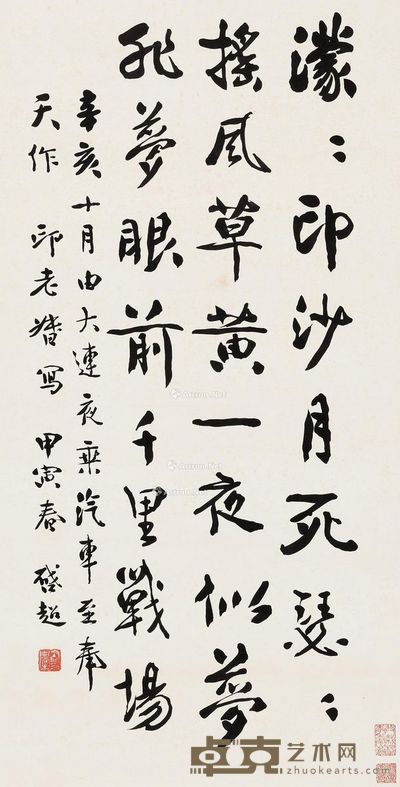 濛〻印沙月死瑟〻
搖風草黃一夜似夢
非夢眼前千里戰場
辛亥十月由大連夜乘汽車至奉
天作 印老督寫 甲寅春 啓超
卓克艺术网
zhuokearts.com